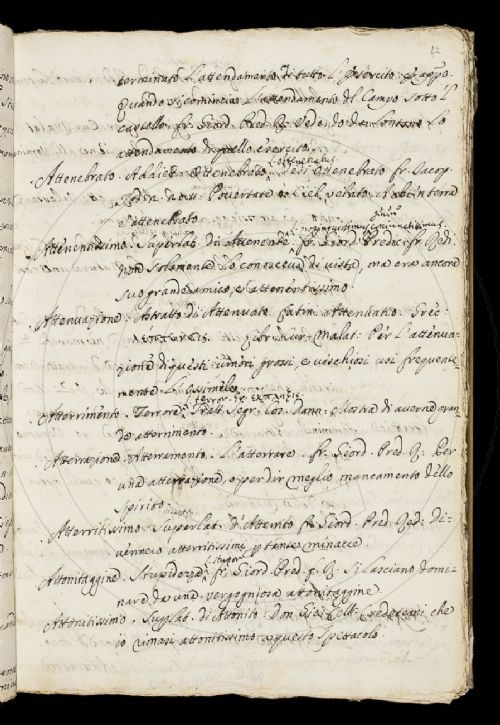 42
terminato l'attendamento di tutto l'esercito, e appo.
Quando si cominciò l'attendamento del Campo sotto 'l
castello. fr. Giord. Pred. R. Vedendo da lontano lo
attendamento di quello esercito.
Attenebrato. Addiett. Ottenebrato. Vedi Ottenebrato fr. Jacop.
Povertate è Ciel velato, A chi in terra
è attenebrato.
Attenentissimo. Superlat. di Attenente. fr. Giord. Pred. R.
Non solamente lo conosceva di vista, ma era ancora
suo grande amico, e attenentissimo.
Attenuazione. Astratto di Attenuato. Latin. Attenuatio. Grec.
Libr. cur. Malat: Per l'attenua-
zione di questi umori grossi, e vischiosi usi frequente-
mente
Atterrimento. Terrore. Tratt. Segr. Cos. Donn. Mostra di averne gran-
de atterrimento.
Atterrazione. Atterramento. L'atterrare. fr. Giord. Pred. R. Per
una atterrazione, o per dir meglio mancamento dello
spirito.
Atterritissimo. Superlat. d'Atterrito fr. Giord. Pred. Red. Di-
atterritissimi p. tante minacce.
stupor
Attonitaggine. Stupidezza. fr. Giord. Pred. R. Si lasciano domi-
nare da una vergognosa attonitaggine.
Attonitissimo. Suplat. di Attonito. Don Gio: Cell. Credetemi che
io rimasi attonitissimo a questo spettacolo.